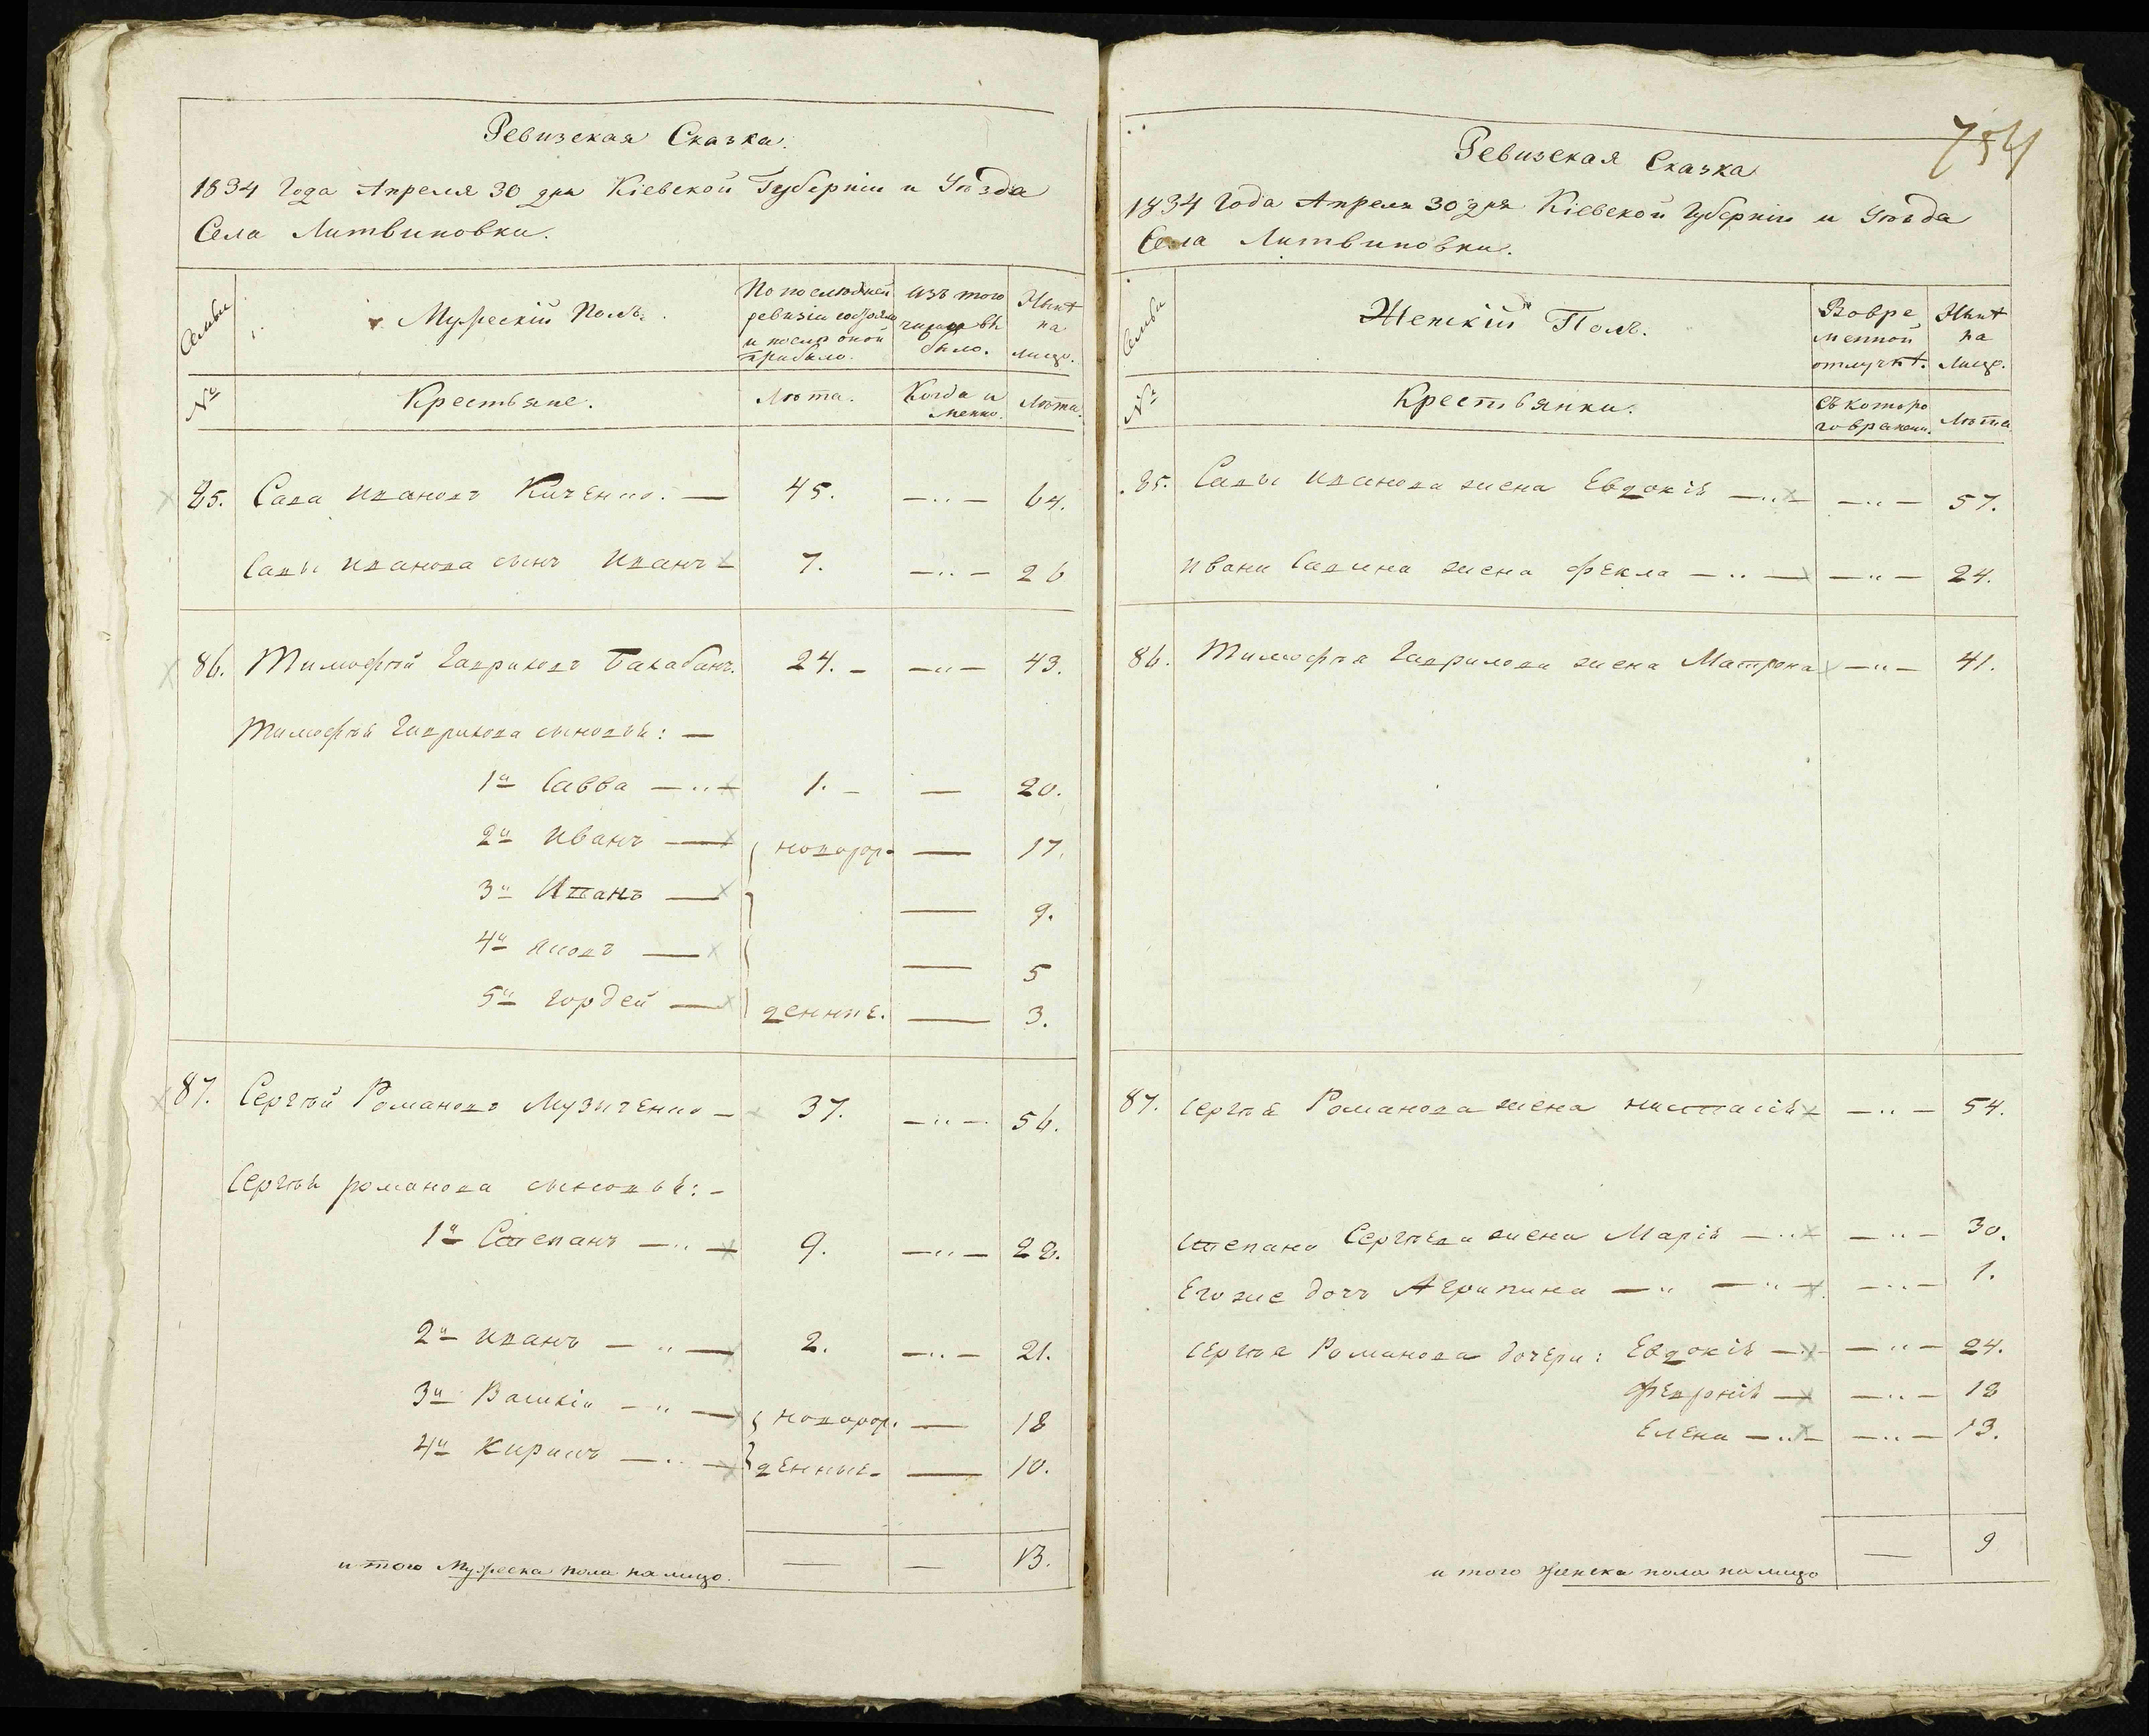 Ревизская Сказка.
1834 Года Апреля 30 дня Кіевской Губерніи и Уѣзда
Села Литвиновки.
Семьи
Мужескій Полъ.
По последней ревизіи состояло и после оной прибыло.
Изъ того числа выбыло.
Нынѣ на лицо.
№
Крестьяне.
Лѣта.
Когда и менно.
Лѣта.
85. Сава Ивановъ Киченко. — 45. —„— 64.
Савы Иванова сынъ Иванъ — 7. —„— 26
86. Тимофѣй Гавриловъ Балабанъ. 24. — —„— 43.
Тимофѣя Гаврилова сыновья: —
1й Савва —„— 1. — — 20.
2й Иванъ — новорож — 17.
3й Иванъ — — 9.
4й Яковъ — — 5
5й Гордей — денные. — 3.
87. Сергѣй Романовъ Музиченко — 37. —„— 56.
Сергѣя романова сыновья: —
1й Степанъ —„— 9. —„— 28.
2й Иванъ —„— 2. —„— 21.
3й Василій —„— новорож. — 18
4й Кирилъ —„— денные — 10.
и того Мужеска пола на лицо. — — 13.
754
Ревизская Сказка
1834 Года Апреля 30 дня Кіевской Губерніи и Уѣзда
Села Литвиновки.
Семьи
Женскій Полъ.
Вовре менной отлучкѣ.
Нынѣ на Лице.
№
Крестьянки.
Съ которо го времени.
Лѣта
85. Савы Иванова жена Евдокія —„— —„— 57.
Ивана Савина жена Фекла —„— —„— 24.
86. Тимофѣя Гаврилова жена Матрона —„— 41.
87. Сергѣя Романова жена Настасія —„— 54.
Степана Сергѣева жена Марія —„— —„— 30.
Его же дочь Агрипина —„—„— —„— 1.
Сергѣя Романова дочери: Евдокія —„— —„— 24.
Февронія — —„— 18
Елена —„— —„— 13.
и того женска пола на лицо — 9